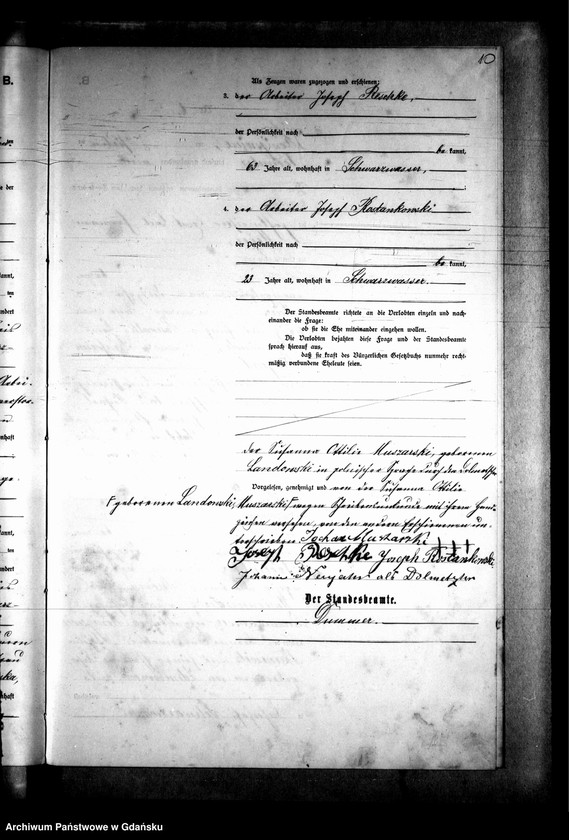 10
B.
Als Zeugen waren zugezogen und erschienen:
3. der Arbeiter Joseph Reschke,
der Persönlichkeit nach
be kannt,
63 Jahre alt, wohnhaft in Schwarzwasser,
4. der Arbeiter Joseph Rostankowski
der Persönlichkeit nach
be kannt,
23 Jahre alt, wohnhaft in Schwarzwasser.
Der Standesbeamte richtete an die Verlobten einzeln und nach-
einander die Frage:
ob sie die Ehe miteinander eingehen wollen.
Die Verlobten bejahten diese Frage und der Standesbeamte
sprach hierauf aus,
daß sie kraft des Bürgerlichen Gesetzbuchs nunmehr recht-
mäßig verbundene Eheleute seien.
der Susanna Ottilie Muszarski, geborenen
Landowski in polnischer Sprache durch den Dolmetscher
Vorgelesen, genehmigt und von der Susanna Ottilie
Γ geborenen Landowski, Muszarski Γ wegen Schreibensunkunde mit ihrem Hand-
zeichen versehen, von den andern Erschienenen un-
terschrieben. Johann Muszarski +++
Joseph Reschke Joseph Rostankowski
Johann als Dolmetscher
Der Standesbeamte.
Dummer.
Archiwum Państwowe w Gdańsku